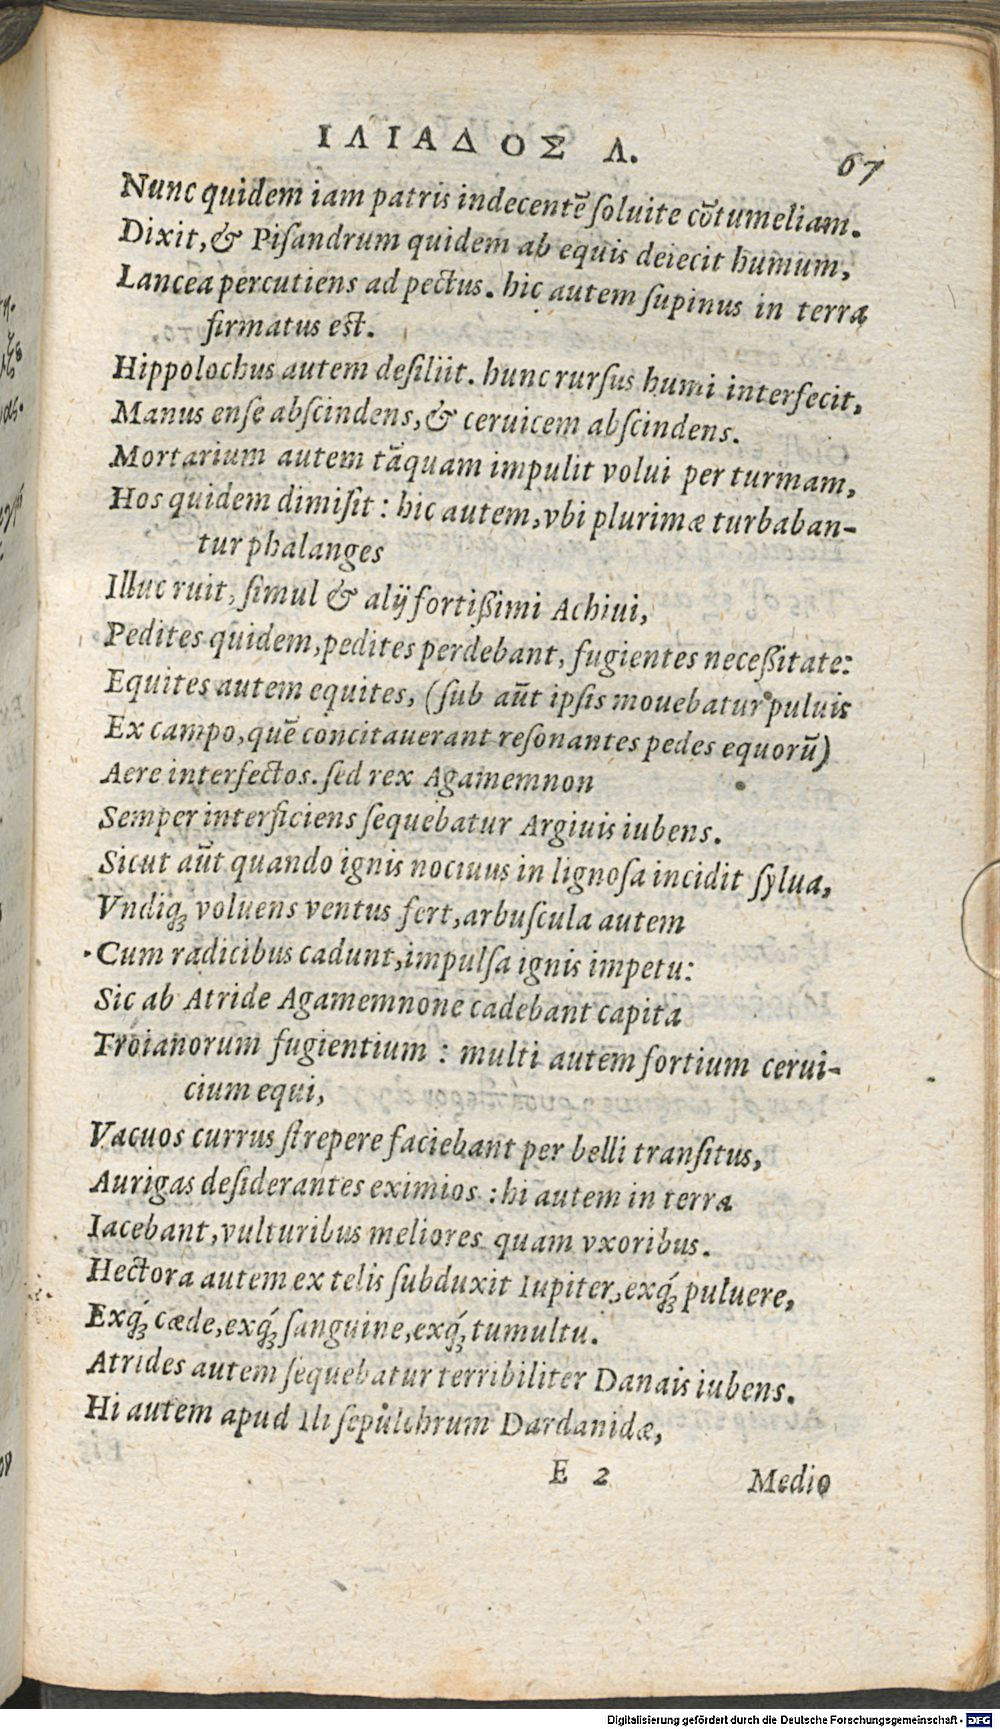 ΙΛΙΑΔΟΣ Λ. 67
Nunc quidem iam patris indecentē ſoluite cōtumeliam.
Dixit, & Piſandrum quidem ab equis deiecit humum,
Lancea percutiens ad pectus. hic autem ſupinus in terra
firmatus eſt.
Hippolochus autem deſiliit. hunc rurſus humi interfecit,
Manus enſe abſcindens, & ceruicem abſcindens.
Mortarium autem tāquam impulit volui per turmam,
Hos quidem dimiſit: hic autem, vbi plurimæ turbaban-
tur phalanges
Illuc ruit, ſimul & alij fortißimi Achiui,
Pedites quidem, pedites perdebant, fugientes neceßitate:
Equites autem equites, (ſub aūt ipſis mouebatur puluis
Ex campo, quē concitauerant reſonantes pedes equorū)
Aere interfectos. ſed rex Agamemnon
Semper interficiens ſequebatur Argiuis iubens.
Sicut aūt quando ignis nociuus in lignoſa incidit ſylua,
Vndiqꝫ voluens ventus fert, arbuſcula autem
Cum radicibus cadunt, impulſa ignis impetu:
Sic ab Atride Agamemnone cadebant capita
Troianorum fugientium : multi autem fortium cerui-
cium equi,
Vacuos currus ſtrepere faciebant per belli tranſitus,
Aurigas deſiderantes eximios : hi autem in terra
Iacebant, vulturibus meliores quam vxoribus.
Hectora autem ex telis ſubduxit Iupiter, exq́ꝫ puluere,
Exq́ꝫ cæde, exq́ꝫ ſanguine, exq́ꝫ tumultu.
Atrides autem ſequebatur terribiliter Danais iubens.
Hi autem apud Ili ſepulchrum Dardanidæ,
E 2 Medio
Digitalisierung gefördert durch die Deutsche Forschungsgemeinschaft - DFG